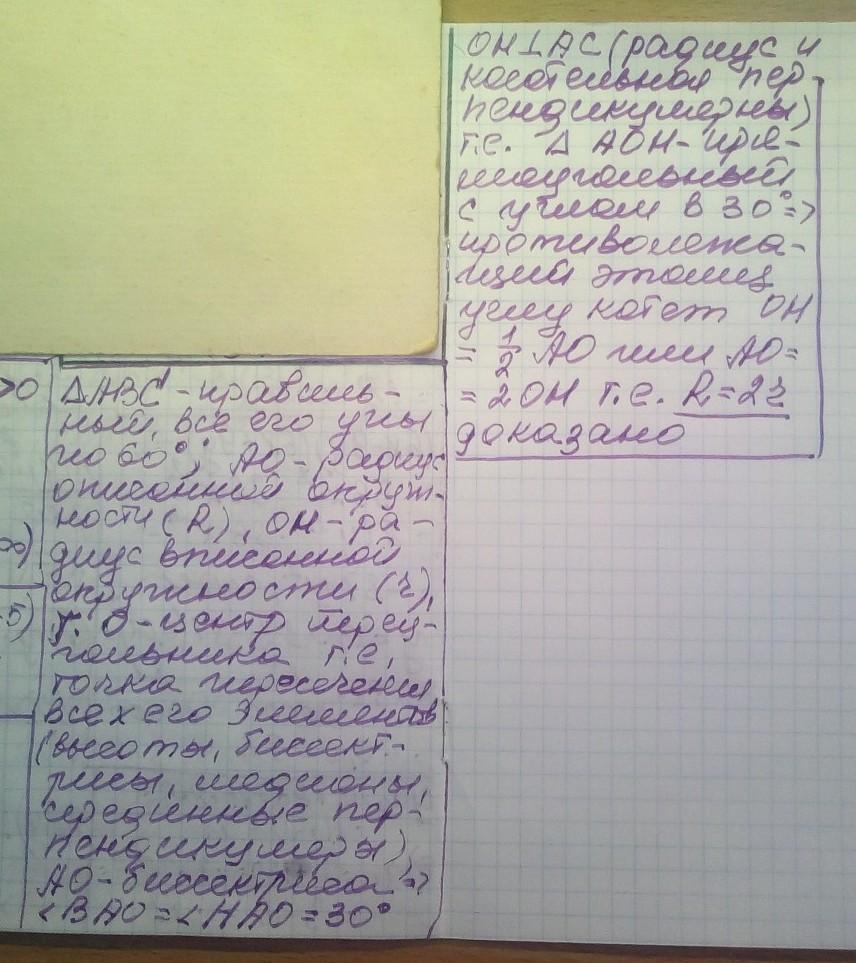 >0
∞)
5)
ΔABC - правиль-
ный, все его углы
по 60°; AO - радиус
описанной окруж-
ности (R), OH - ра-
диус вписанной
окружности (r),
т. O - центр треу-
гольника т.е.
точка пересечения
всех его элементов
(высоты, биссект-
рисы, медианы,
серединные пер-
пендикуляры)
AO - биссектриса =>
<BAO = <HAO = 30°
OH⊥AC (радиус и
касательная пер-
пендикулярны)
т.е. Δ AOH - пря-
моугольный
с углом в 30° =>
противолежа-
щий этому
углу катет OH
= 1/2 AO или AO =
= 2OH т.е. R = 2r
доказано